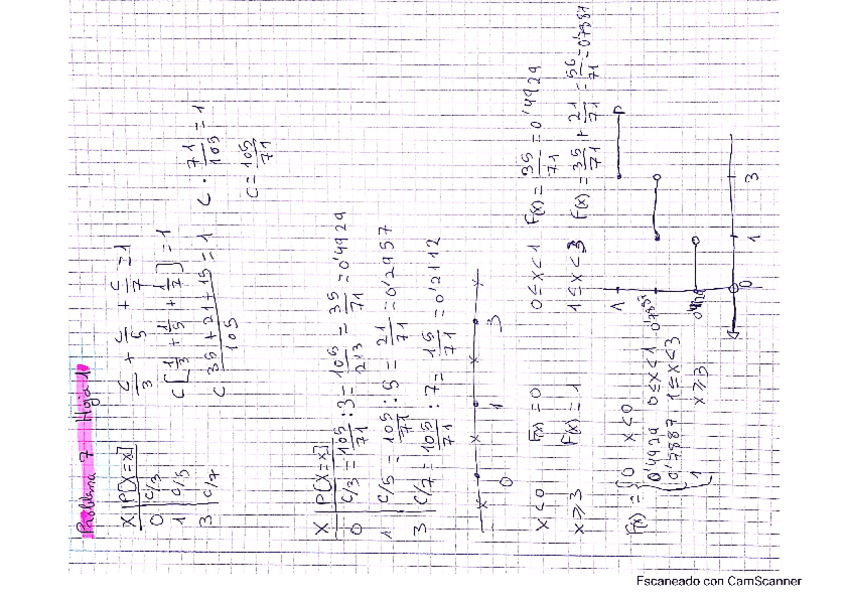 Problema 7 Hoja 1
X | P[X=x]
0 | C/3
1 | C/5
3 | C/7
C/3 + C/5 + C/7 = 1
C[1/3 + 1/5 + 1/7] = 1
C (35+21+15)/105 = 1
C · 71/105 = 1
C = 105/71
X | P[X=x]
0 | C/3 = 105/71 : 3 = 105/213 = 35/71 = 0'4929
1 | C/5 = 105/71 : 5 = 21/71 = 0'2957
3 | C/7 = 105/71 : 7 = 15/71 = 0'2112
x x x x
0 1 3
x<0 F(x) = 0
0≤x<1 F(x) = 35/71 = 0'4929
x≥3 F(x) = 1
1≤x<3 F(x) = 35/71 + 21/71 = 56/71 = 0'7887
F(x) = { 0 x<0
0'4929 0≤x<1
0'7887 1≤x<3
1 x≥3
1
0 1 3
Escaneado con CamScanner